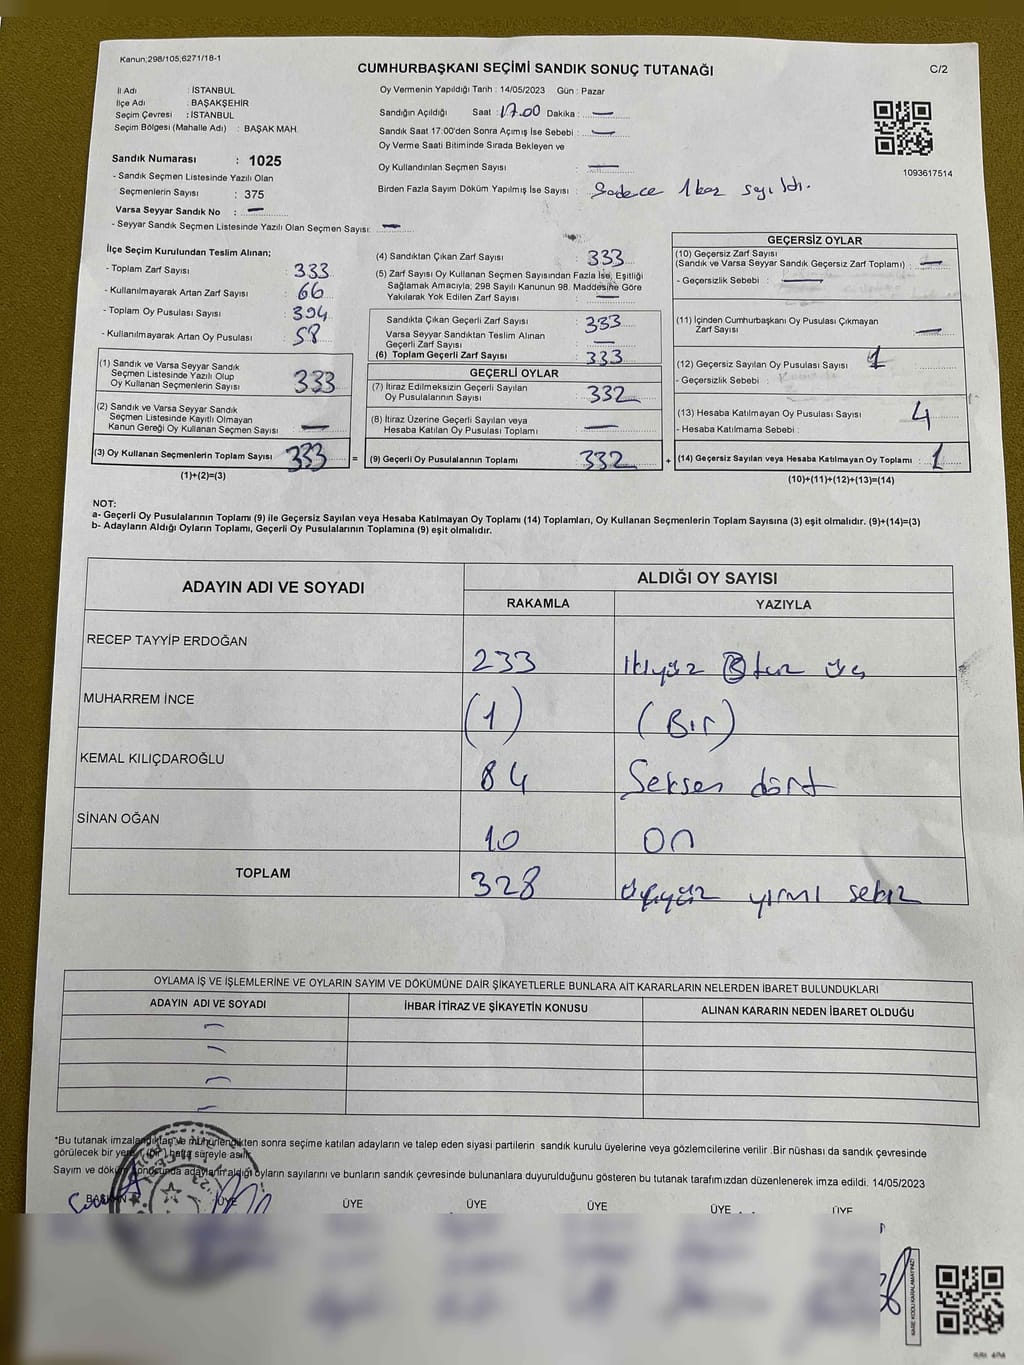 Kanun;298/105,6271/18-1
CUMHURBAŞKANI SEÇİMİ SANDIK SONUÇ TUTANAĞI
C/2
İl Adı : İSTANBUL
İlçe Adı : BAŞAKŞEHİR
Seçim Çevresi : İSTANBUL
Seçim Bölgesi (Mahalle Adı) : BAŞAK MAH
Oy Vermenin Yapıldığı Tarih : 14/05/2023 Gün : Pazar
Sandığın Açıldığı Saat : 17.00 Dakika : —
Sandık Saat 17.00'den Sonra Açımış İse Sebebi : —
Oy Verme Saati Bitiminde Sırada Bekleyen ve
Oy Kullandırılan Seçmen Sayısı : —
Birden Fazla Sayım Döküm Yapılmış İse Sayısı : Sadece 1 kez sayıldı.
1093617514
Sandık Numarası : 1025
- Sandık Seçmen Listesinde Yazılı Olan
Seçmenlerin Sayısı : 375
Varsa Seyyar Sandık No : —
- Seyyar Sandık Seçmen Listesinde Yazılı Olan Seçmen Sayısı: —
İlçe Seçim Kurulundan Teslim Alınan;
- Toplam Zarf Sayısı : 333
- Kullanılmayarak Artan Zarf Sayısı : 66
- Toplam Oy Pusulası Sayısı : 394
- Kullanılmayarak Artan Oy Pusulası : 58
(1) Sandık ve Varsa Seyyar Sandık
Seçmen Listesinde Yazılı Olup
Oy Kullanan Seçmenlerin Sayısı : 333
(2) Sandık ve Varsa Seyyar Sandık
Seçmen Listesinde Kayıtlı Olmayan
Kanun Gereği Oy Kullanan Seçmen Sayısı : —
(3) Oy Kullanan Seçmenlerin Toplam Sayısı : 333
(1)+(2)=(3)
(4) Sandıktan Çıkan Zarf Sayısı : 333
(5) Zarf Sayısı Oy Kullanan Seçmen Sayısından Fazla İse, Eşitliği
Sağlamak Amacıyla; 298 Sayılı Kanunun 98. Maddesine Göre
Yakılarak Yok Edilen Zarf Sayısı : —
Sandıkta Çıkan Geçerli Zarf Sayısı : 333
Varsa Seyyar Sandıktan Teslim Alınan
Geçerli Zarf Sayısı : —
(6) Toplam Geçerli Zarf Sayısı : 333
GEÇERLİ OYLAR
(7) İtiraz Edilmeksizin Geçerli Sayılan
Oy Pusulalarının Sayısı : 332
(8) İtiraz Üzerine Geçerli Sayılan veya
Hesaba Katılan Oy Pusulası Toplamı : —
= (9) Geçerli Oy Pusulalarının Toplamı : 332 +
GEÇERSİZ OYLAR
(10) Geçersiz Zarf Sayısı
(Sandık ve Varsa Seyyar Sandık Geçersiz Zarf Toplamı) : —
- Geçersizlik Sebebi : —
(11) İçinden Cumhurbaşkanı Oy Pusulası Çıkmayan
Zarf Sayısı : —
(12) Geçersiz Sayılan Oy Pusulası Sayısı : 1
- Geçersizlik Sebebi :
(13) Hesaba Katılmayan Oy Pusulası Sayısı : 4
- Hesaba Katılmama Sebebi :
(14) Geçersiz Sayılan veya Hesaba Katılmayan Oy Toplamı : 1
(10)+(11)+(12)+(13)=(14)
NOT:
a- Geçerli Oy Pusulalarının Toplamı (9) ile Geçersiz Sayılan veya Hesaba Katılmayan Oy Toplamı (14) Toplamları, Oy Kullanan Seçmenlerin Toplam Sayısına (3) eşit olmalıdır. (9)+(14)=(3)
b- Adayların Aldığı Oyların Toplamı, Geçerli Oy Pusulalarının Toplamına (9) eşit olmalıdır.
ADAYIN ADI VE SOYADI
ALDIĞI OY SAYISI
RAKAMLA YAZIYLA
RECEP TAYYİP ERDOĞAN 233 İkiyüz Otuz üç
MUHARREM İNCE (1) (Bir)
KEMAL KILIÇDAROĞLU 84 Seksen dört
SİNAN OĞAN 10 On
TOPLAM 328 üçyüz yirmi sekiz
OYLAMA İŞ VE İŞLEMLERİNE VE OYLARIN SAYIM VE DÖKÜMÜNE DAİR ŞİKAYETLERLE BUNLARA AİT KARARLARIN NELERDEN İBARET BULUNDUKLARI
ADAYIN ADI VE SOYADI İHBAR İTİRAZ VE ŞİKAYETİN KONUSU ALINAN KARARIN NEDEN İBARET OLDUĞU
*Bu tutanak imzalandıktan ve mühürlendikten sonra seçime katılan adayların ve talep eden siyasi partilerin sandık kurulu üyelerine veya gözlemcilerine verilir .Bir nüshası da sandık çevresinde
görülecek bir yere 1 (bir) hafta süreyle asılır.
Sayım ve döküm sonucunda adayların aldığı oyların sayılarını ve bunların sandık çevresinde bulunanlara duyurulduğunu gösteren bu tutanak tarafımızdan düzenlenerek imza edildi. 14/05/2023
BAŞKAN ÜYE ÜYE ÜYE ÜYE ÜYE ÜYE
KARE KODU KARALAMAYINIZ!